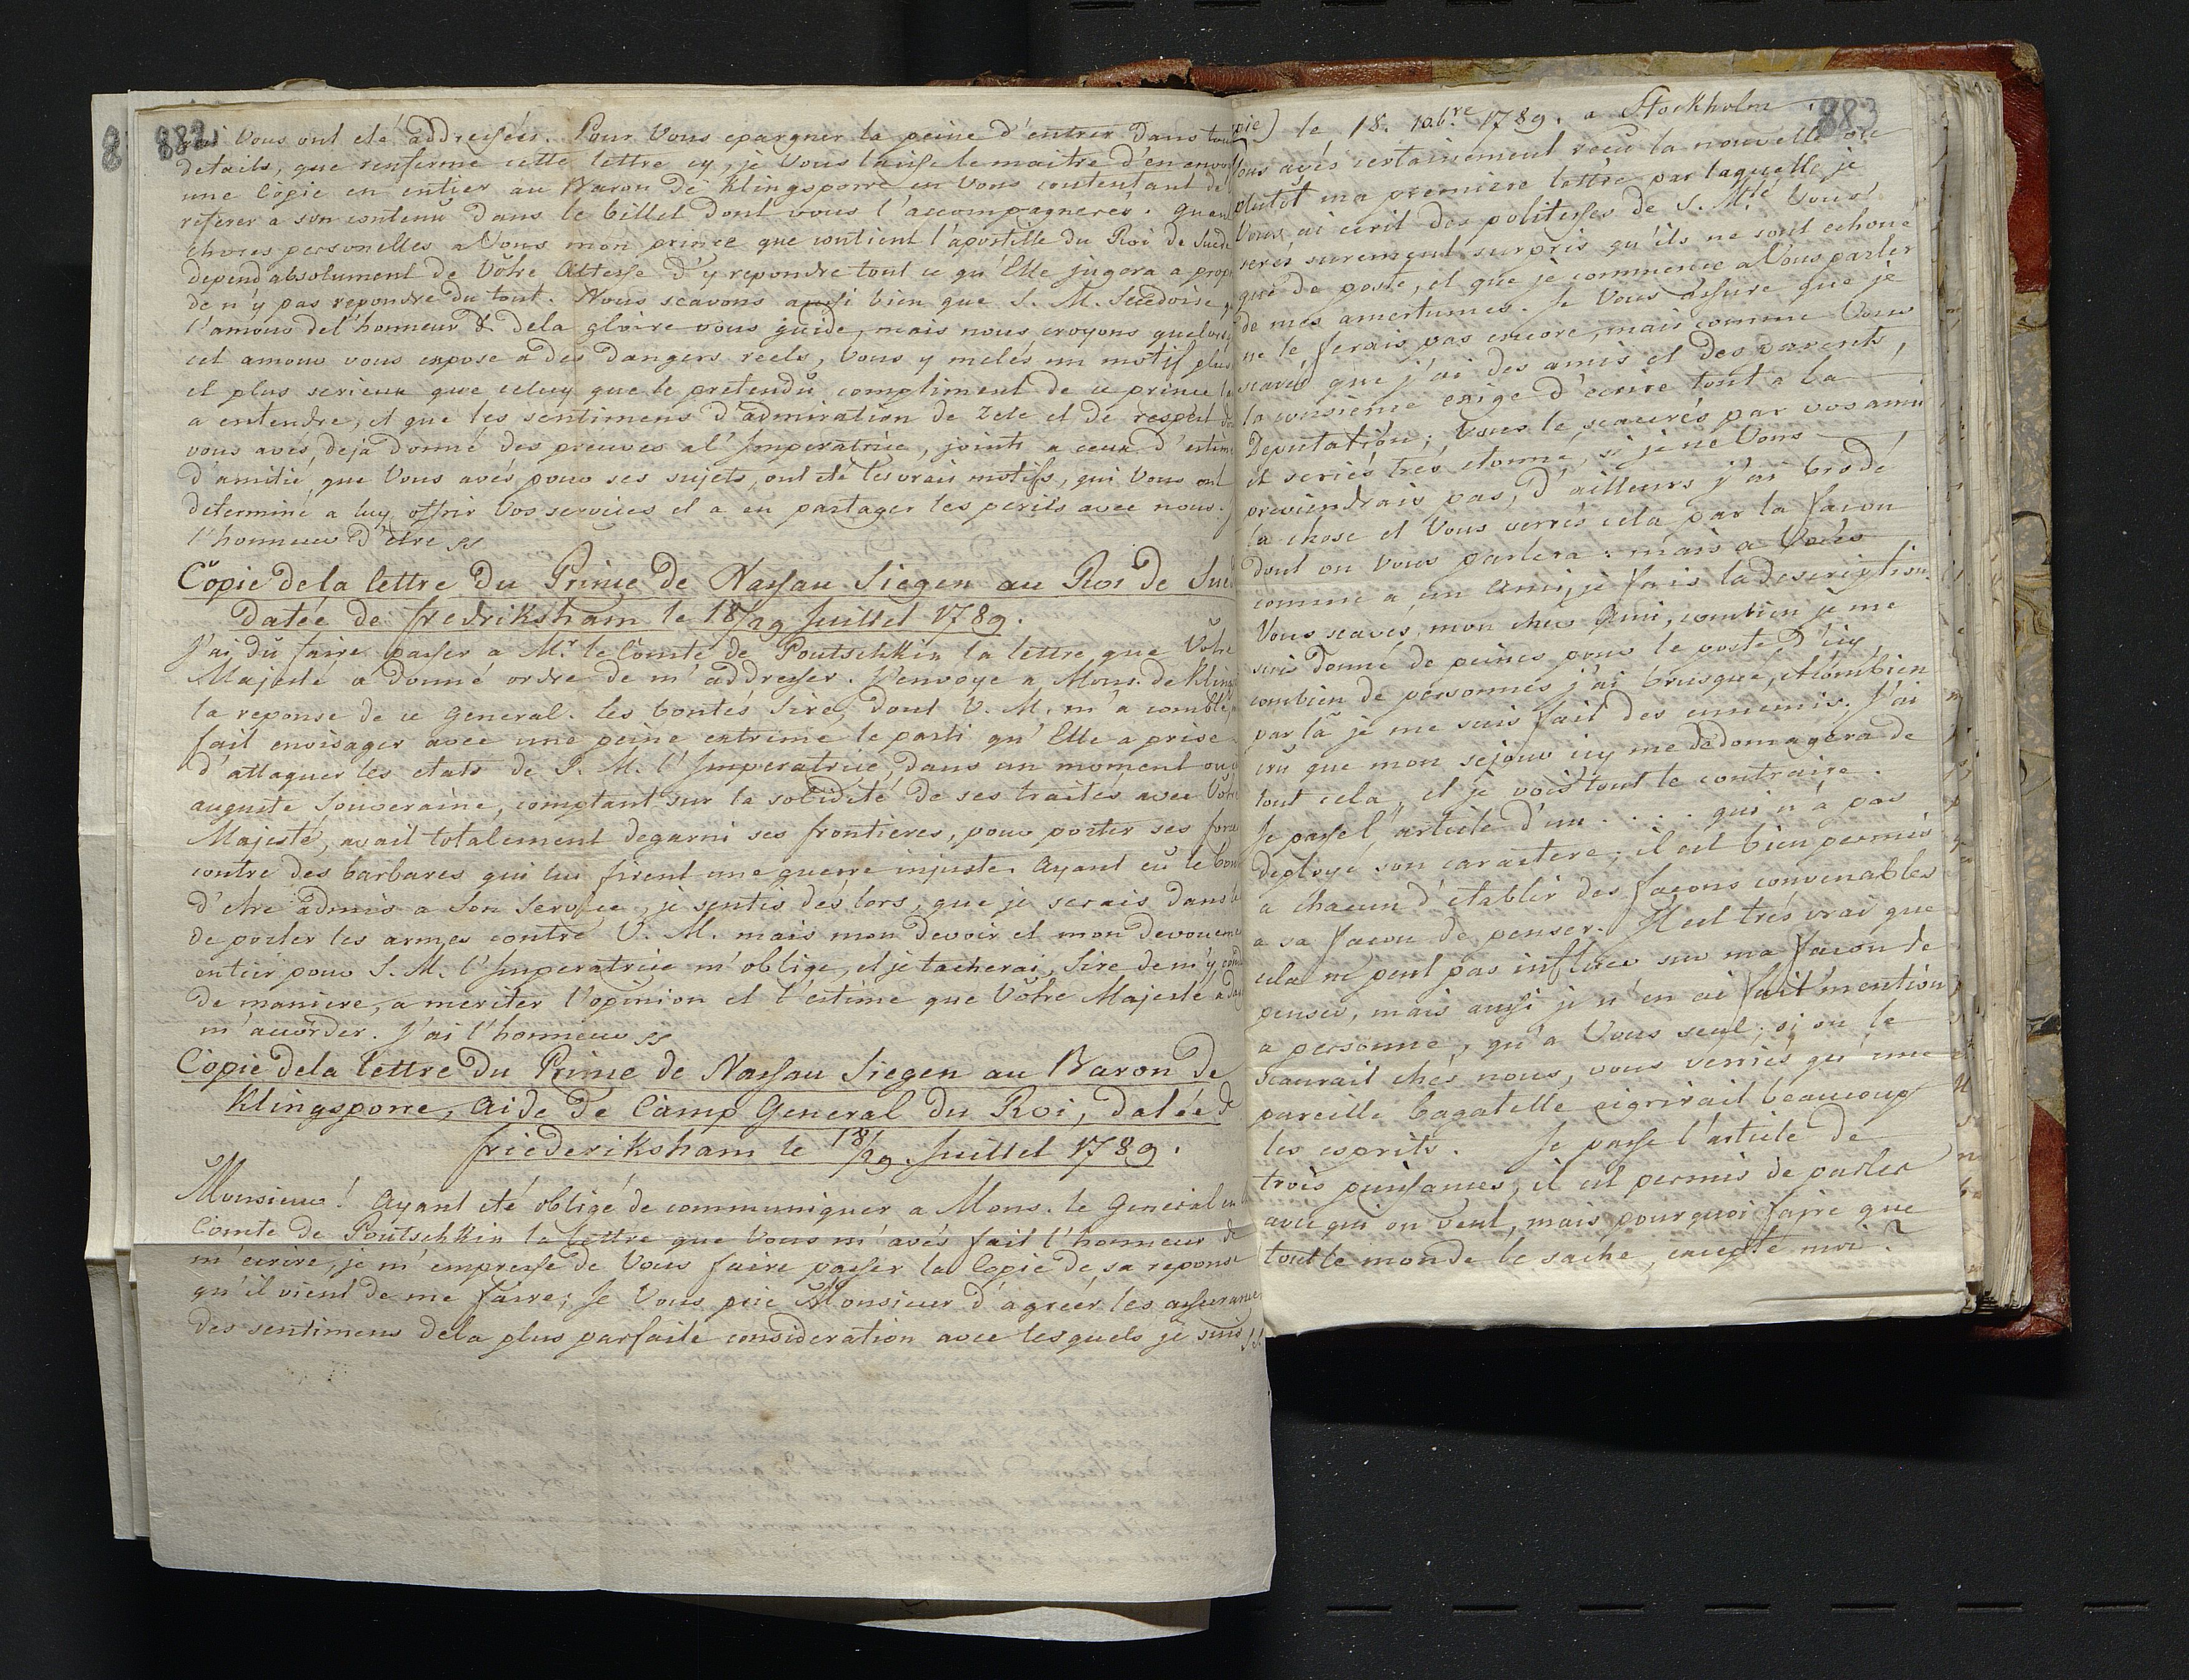 882
Vous ont eté addressées. Pour Vous epargner la peine d'entrer dans tous
details, que renferme cette lettre cy, je Vous laisse le maitre d'en
une Copie en entier au Baron de Klingsporre en Vous contentant de
referer a son contenu dans le billet dont vous l'accompagnerés.
choses personelles a Vous mon prince que contient l'apostille du Roi de
depend absolument de Vôtre Altesse d'y repondre tout ce qu'Elle jugera a
de n'y pas repondre du tout. Nous scavons aussi bien que S. M. Suedoise
l'amour de l'honneur & dela gloire vous guide, mais nous croyons
cet amour vous expose a des dangers reels, Vous y melés un motif plus
et plus serieux que celuy que le pretendû compliment de ce prince
a entendre, et que les sentimens d'admiration de Zele et de respect
vous avés, deja donné des preuves a l'Imperatrice, joints a ceux d'estime
d'amitié, que Vous avés pour ses sujets, ont eté les vrais motifs, qui Vous ont
determiné a luy offrir Vos services et a en partager les perils avec nous.
l'honneur d'être
Copie dela lettre du Prince de Nassau Siegen au Roi de
Datée de fredriksham le 18/29 Juillet 1789.
J'ai dû faire passer a Mr. le Comte de Poutschkin la lettre que Vôtre
Majesté a donné ordre de m'addresser. J'envoye a Mons. de
la reponse de ce General. les bontés Sire, dont V. M. m'a
fait envisager avec une peine extrême le parti qu'Elle a prise
d'attaquer les etats de S. M. l'Imperatrice, dans un moment ou
auguste Souveraine, comptant sur la solidité de ses traités avec
Majesté, avait totalement degarni ses frontieres, pour porter ses
contre des barbares qui lui firent une guerre injuste. Ayant eû le
d'etre admis a Son Service, je sentis dés lors, que je serais dans
de porter les armes contre V. M. mais mon devoir et mon
entier pour S. M. l'Imperatrice m'oblige, et je tacherai, Sire de m'y
de maniere, a meriter l'opinion et l'estime que Vôtre Majesté a
m'accorder. J'ai l'honneur
Copie dela lettre du Prince de Nassau Siegen au Baron de
Klingsporre, Aide de Camp General du Roi, datée de
friederiksham le 18/29 Juillet 1789.
Monsieur! Ayant eté obligé de communiquer a Mons. le General en
Comte de Poutschkin la lettre que Vous m'avés fait l'honneur de
m'ecrire, je m'empresse de Vous faire passer la Copie de sa reponse
qu'il vient de me faire; Je Vous prie Monsieur d'agréer les
des sentimens dela plus parfaite consideration avec lesquels je suis
883
le 18. 10b.re 1789. a Stockholm.
Vous avés certainement recu la nouvelle ou
plutôt ma premiere lettre par laquelle je
Vous ai ecrit des politesses de S. Mté Vous
serés surement surpris qu'ils ne sont echoué
que de poste, et que je commence a Vous parler
de mes amertumes. Je Vous assure que je
ne le ferais pas encore, mais comme Vous
scavés que j'ai des amis et des parents,
la consience exige d'ecrire tout a la
Deputation; Vous le scaurés par vos amis
et seriés trés etonné, si je ne Vous
previendrais pas, d'ailleurs j'ai brodé
la chose et Vous verrés cela par la facon
dont on vous parlera: mais a Vous
comme a un Ami, je fais la description.
Vous scavés, mon cher Ami, combien je me
suis donné de peines pour le poste d'icy
combien de personnes j'ai brusqué, et combien
par lâ je me suis fait des ennemis. J'ai
crû que mon sejour icy me dedomagera de
tout cela, et je vois tout le contraire.
Je passe l'article d'un . . . . qui n'a pas
deploye son caractere; il est bien permis
a chacun d'etablir des facons convenables
a sa facon de penser. Il est trés vrai que
cela ne peut pas influer sur ma facon de
penser, mais aussi je n'en ai fait mention
a personne, qu'a Vous seul; si on le
scaurait chés nous, vous verriés qu'une
pareille bagatelle aigrirait beaucoup
les esprits. Je passe l'article de
trois puissances, il est permis de parler
avec qui on veut, mais pourquoi faire que
tout le monde le sache, excepté moi?